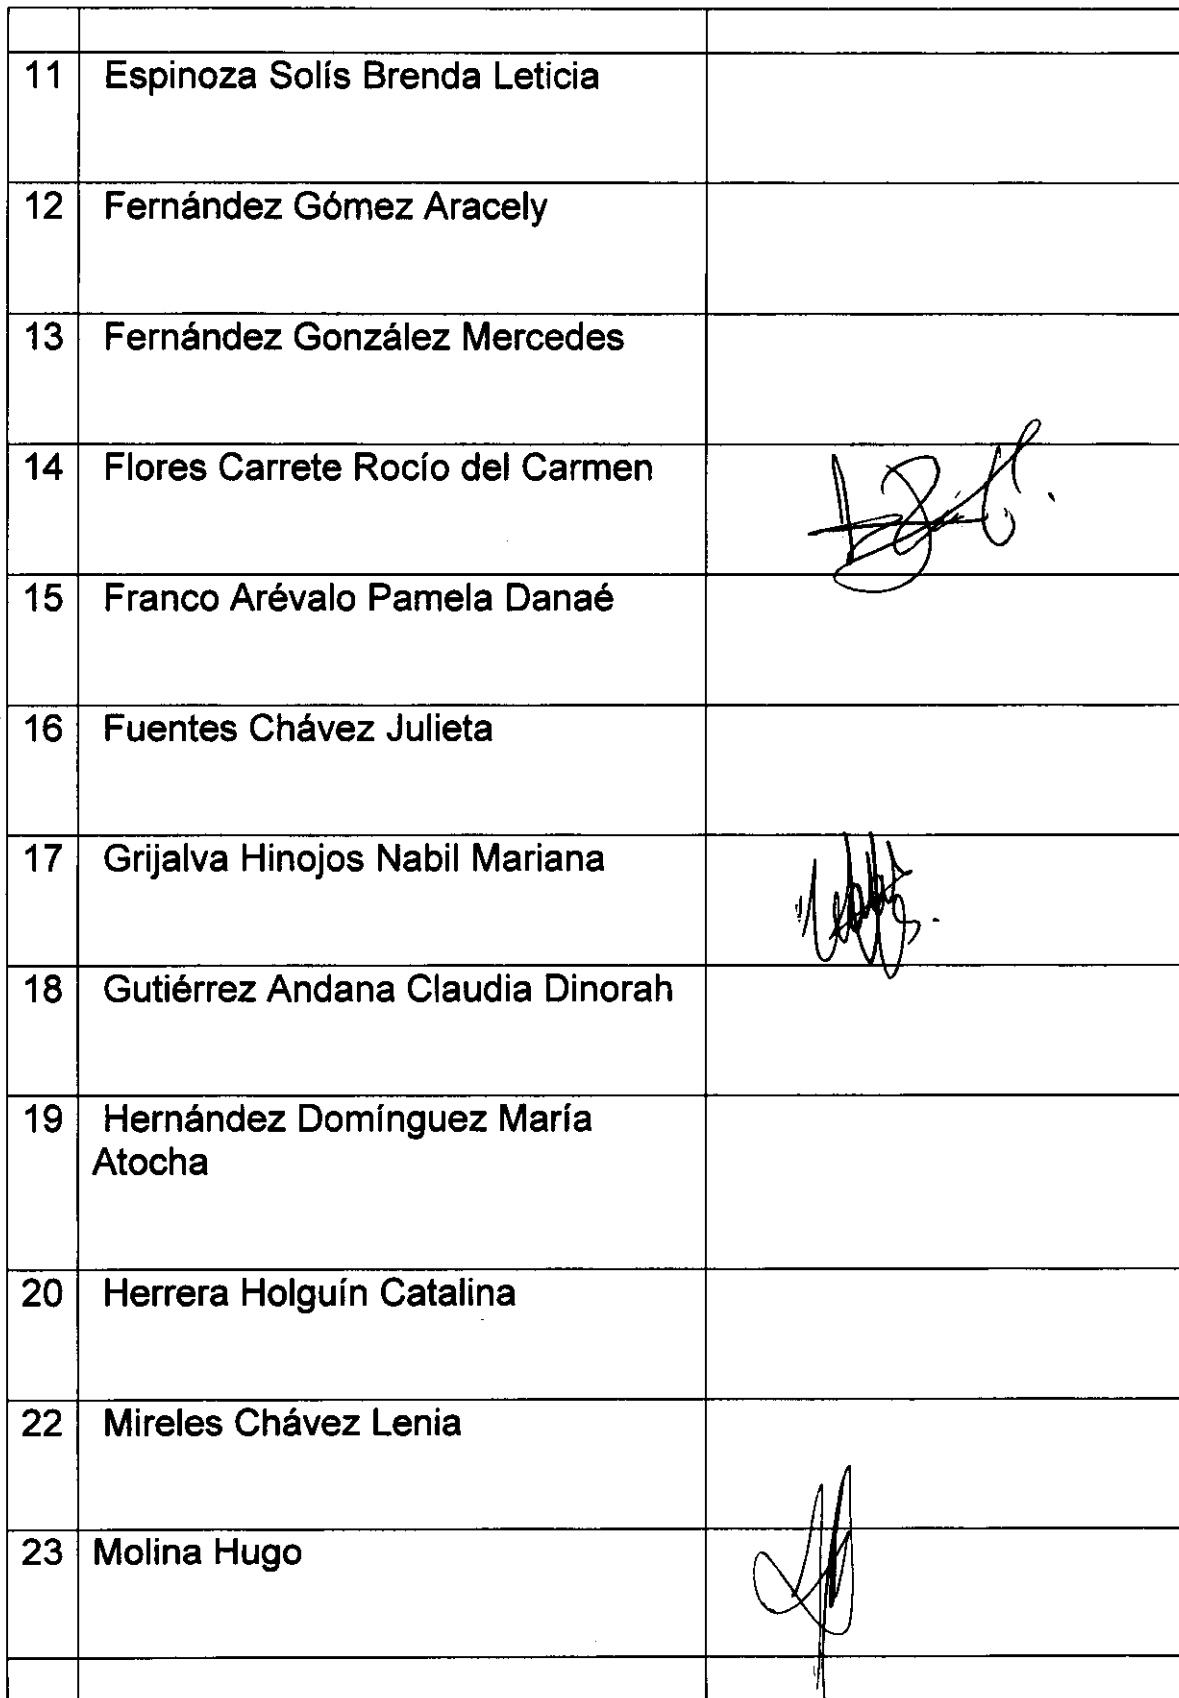 11 Espinoza Solís Brenda Leticia
12 Fernández Gómez Aracely
13 Fernández González Mercedes
14 Flores Carrete Rocío del Carmen
15 Franco Arévalo Pamela Danaé
16 Fuentes Chávez Julieta
17 Grijalva Hinojos Nabil Mariana
18 Gutiérrez Andana Claudia Dinorah
19 Hernández Domínguez María
Atocha
20 Herrera Holguín Catalina
22 Mireles Chávez Lenia
23 Molina Hugo